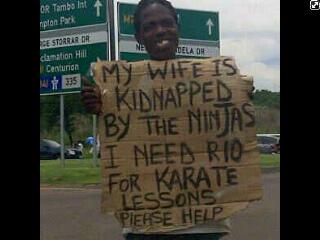 OR Tambo Int
mpton PARK
RGE STORRAR DR
oclamation Hill
Centurion
335
NELS
DELA DR
MY WIFE IS
KIDNAPPED
BY THE NINJAS
I NEED R10
FOR KARATE
LESSONS
PLEASE HELP